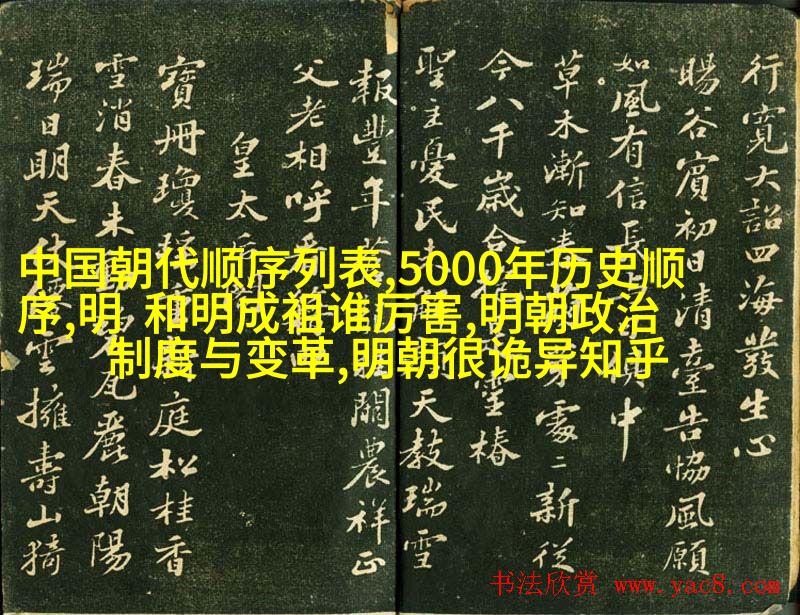 中国朝代顺序列表,5000年历史顺
序,明 和明成祖谁厉害,明朝政治
制度与变革,明朝很诡异知乎
行寬大詔四海發生心
暘谷賓初日清臺告協風願
如風有信長 俱中
草木漸知春 芽處〻新從
今八千歲合 靈椿
聖主憂民 天教瑞雪
報豐年 關農祥正
父老相呼
皇太
寶冊瓊 庭松桂香
雪消春未 瓦麗朝陽
瑞日明天 雲擁壽山猗
书法欣赏 www.yac8.com